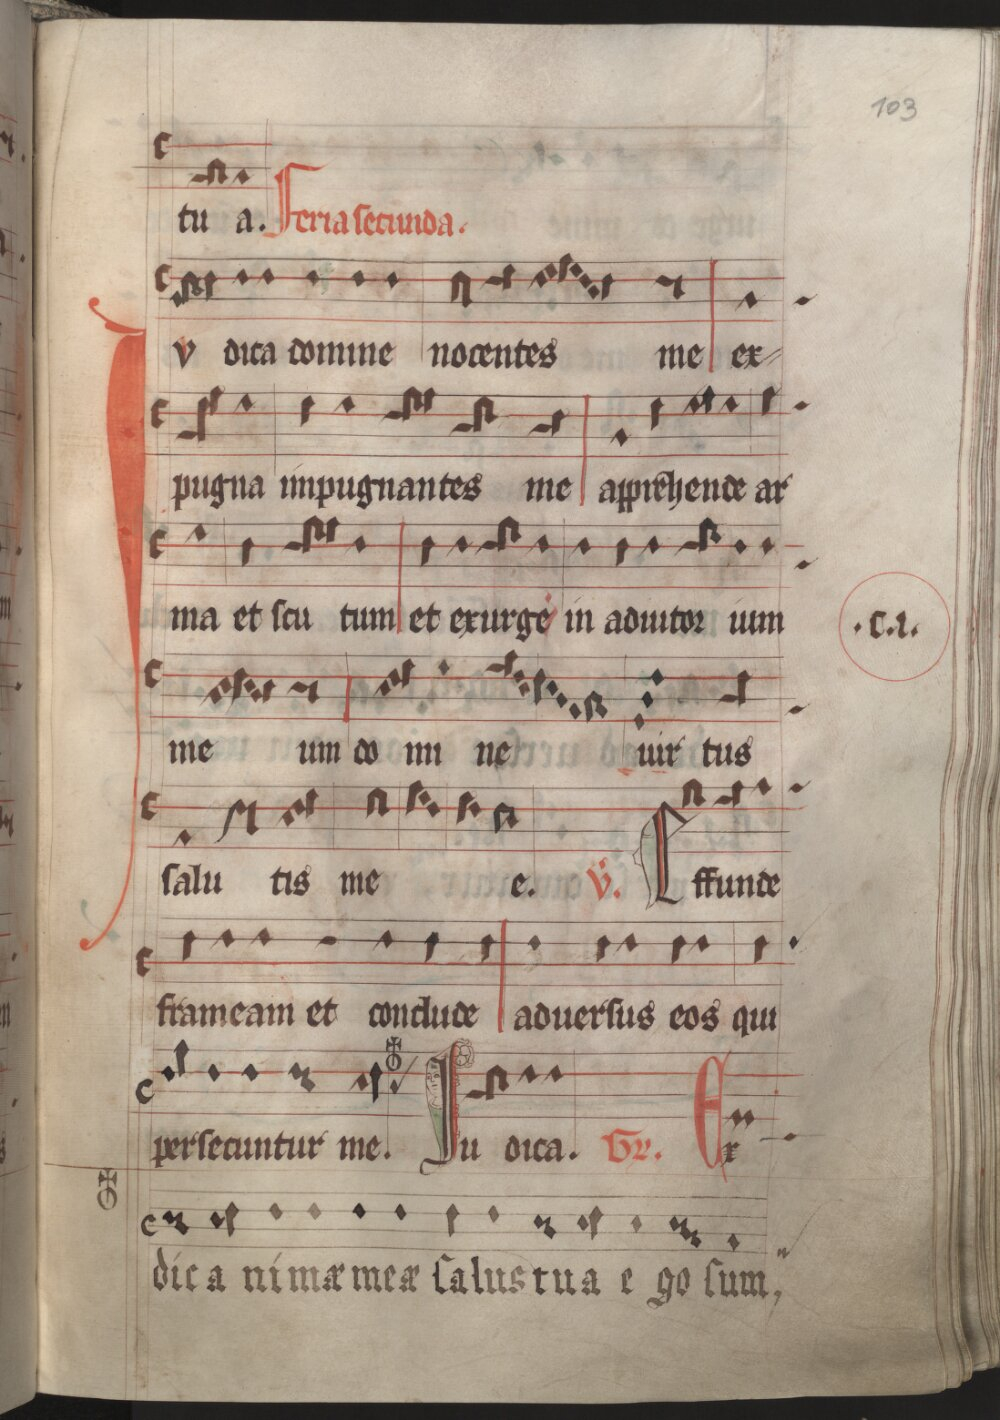 103
tu a. Feria secunda.
Iv dica domine nocentes me ex=
pugna impugnantes me apprehende ar
ma et scu tum et exurge in adiutor ium
.c.i.
me um do mi ne uir tus
salu tis me e. V. Effunde
frameam et conclude aduersus eos qui
persecuntur me. Iu dica. Gr. Ex
dic a nimæ meæ salus tua e go sum,